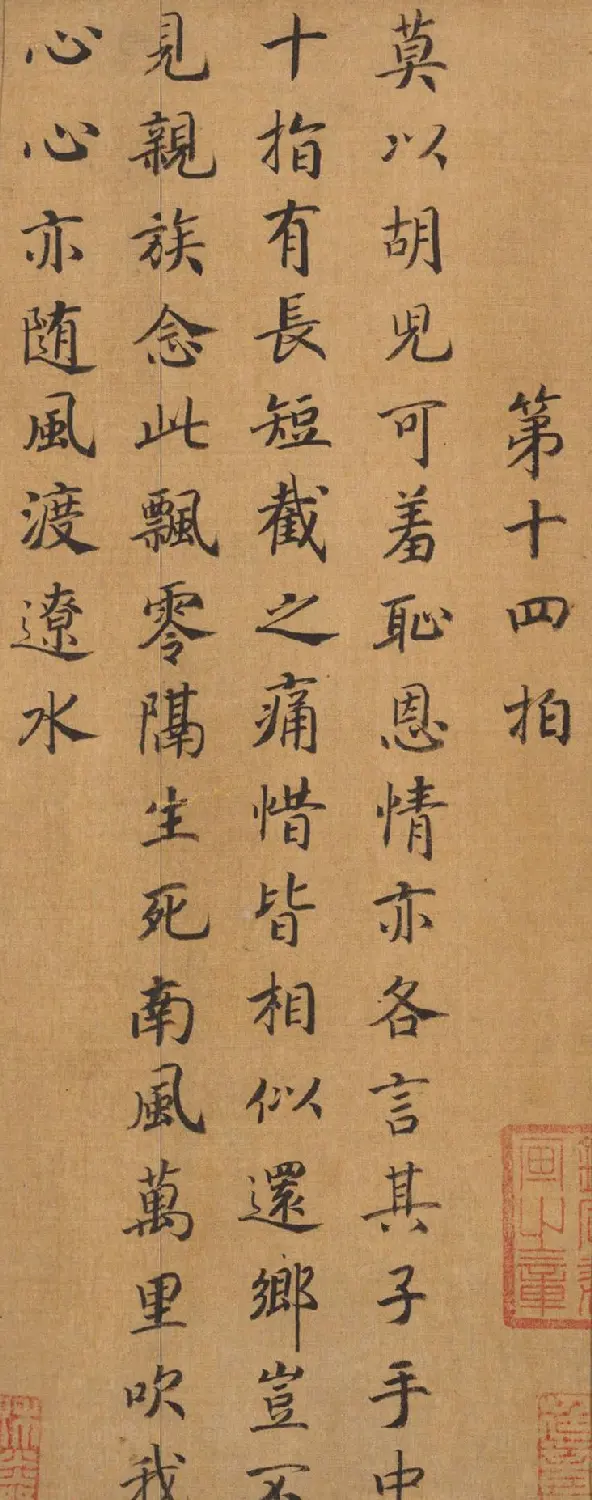 第十四拍
莫以胡兒可羞恥恩情亦各言其子手中
十指有長短截之痛惜皆相似還鄉豈不
見親族念此飄零隔生死南風萬里吹我
心心亦隨風渡遼水